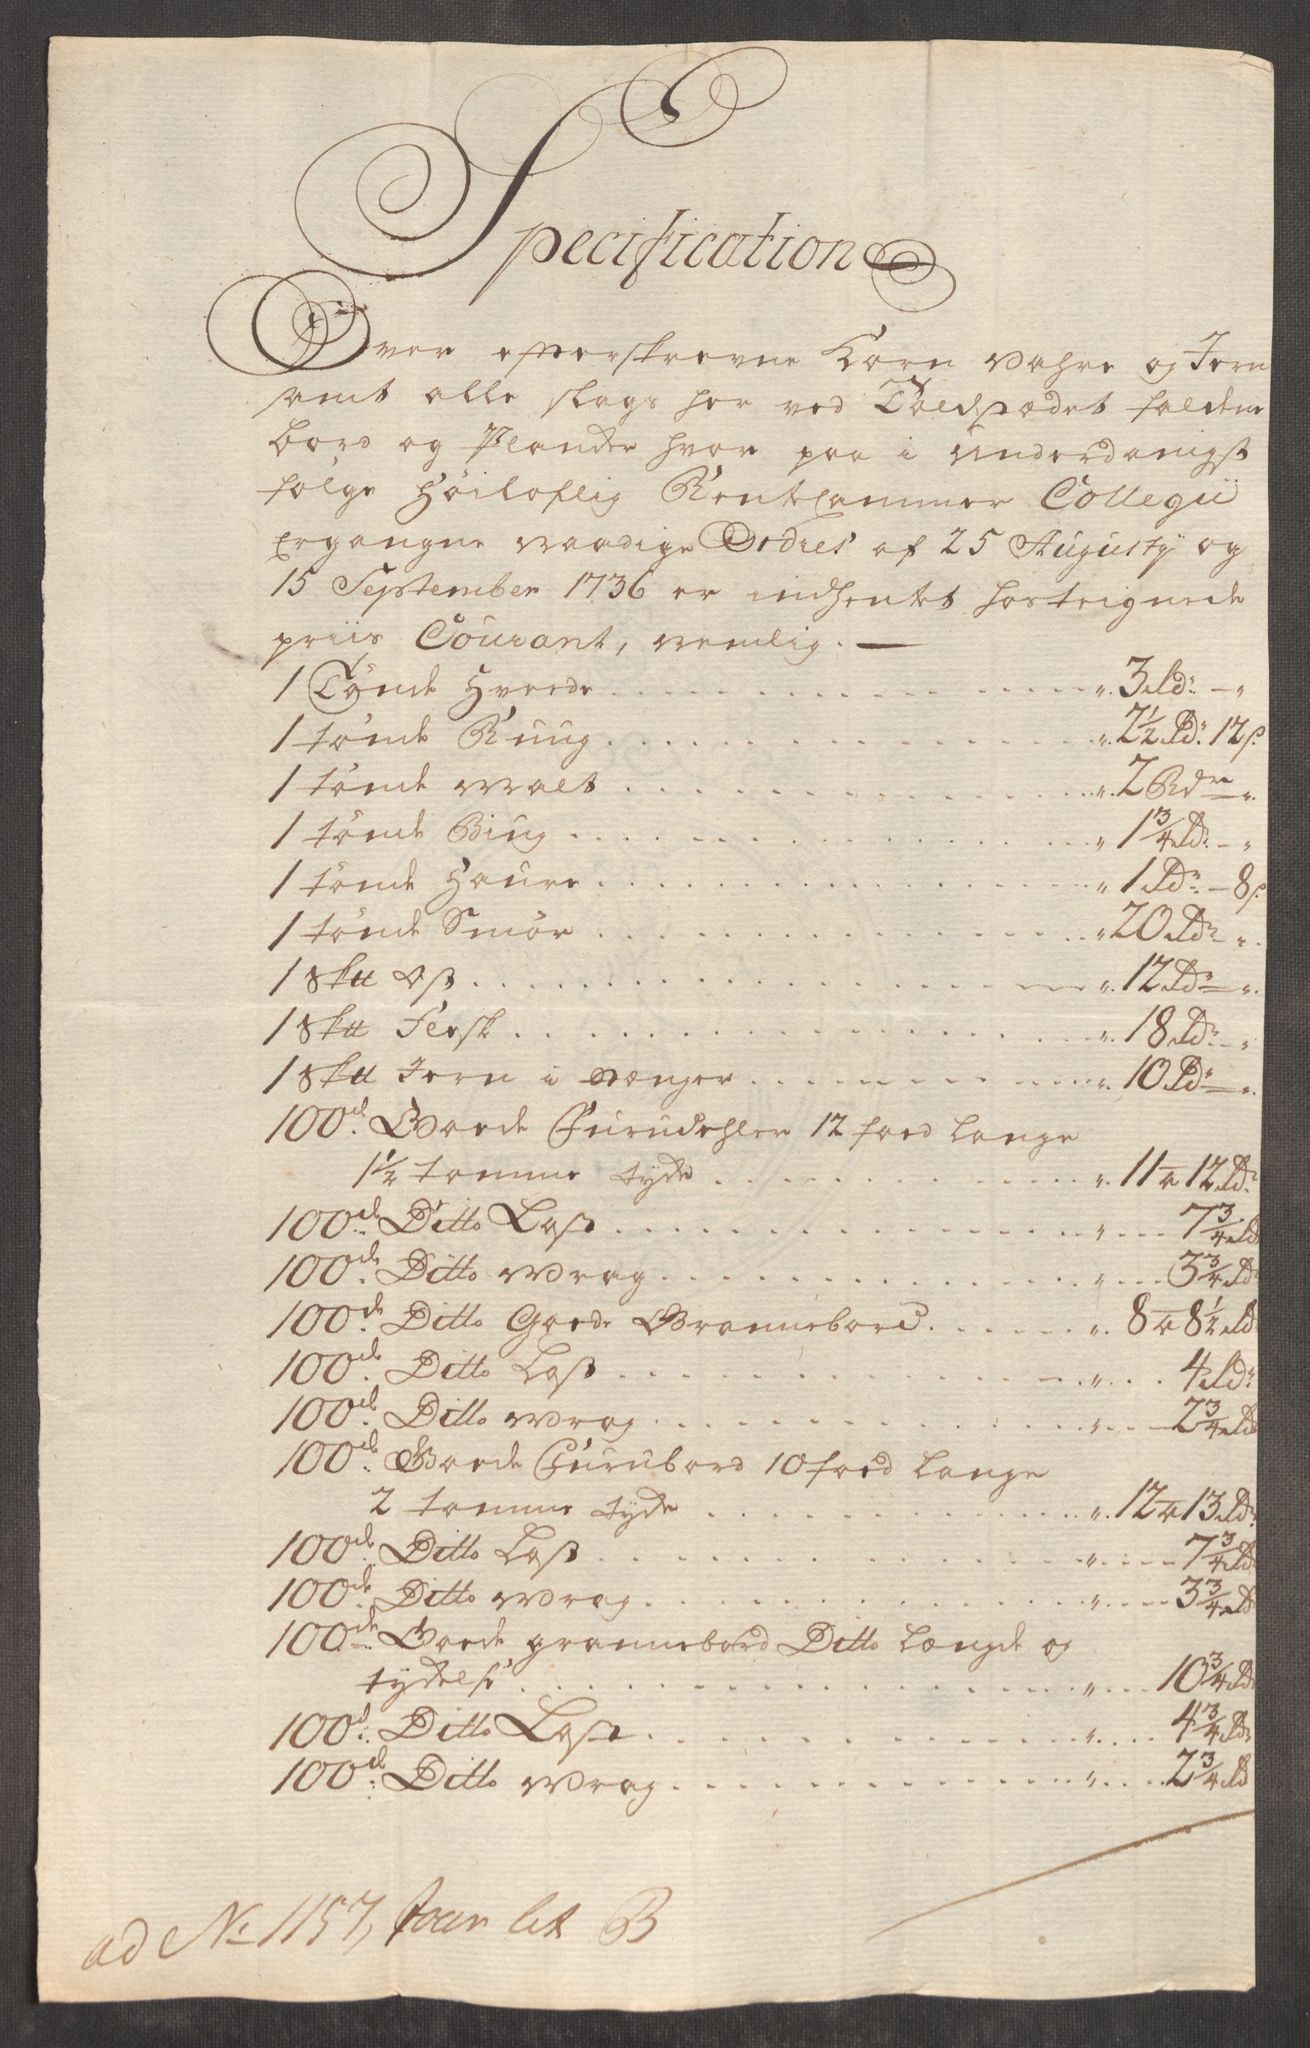 Specification
Over efterskrevne Korn Vahre og Jern
samt alle slags her ved Toldstædet faldene
bord og Plancker hvor paa i Underdanigst
følge Høiloflig Rentekammer Collegii
Ergangne naadige Ordres af 25 Augustÿ og
15 September 1736 er indhentet hostegnede
priis Courant, nemlig. —
1 Tønde Hvede . . . " 3 Rdr. — "
1 tønde Ruug . . . " 2½ Rdr. 12 s.
1 tønde Malt . . . " 2 Rdr — "
1 tønde Biug . . . " 1¾ Rdr. — "
1 tønde Haure . . . " 1 Rdr. — 8 s.
1 tønde Smør . . . " 20 Rdr — "
1 Sktt Ost . . . " 12 Rdr — "
1 Sktt Flesk . . . " 18 Rdr. — "
1 Sktt Jern i Stænger . . . " 10 Rdr — "
100de. Goede Furudehler 12 foed lange
1½ tomme tyke . . . " 11 a 12 Rdr.
100de. Ditto Last . . . " 7¾ Rdr
100de. Ditto Wrag . . . " 3¾ Rdr
100de. Ditto Goede Grannebord . . . " 8 a 8½ Rd
100de. Ditto Last . . . " 4 Rdr
100de. Ditto Wrag . . . " 2¾ Rd
100de. Goede Furubord 10 foed lange
2 tomme tyke . . . " 12 a 13 Rdr
100de. Ditto Last . . . " 7¾ Rd
100de. Ditto Wrag . . . " 3¾ Rd
100de. Goede grannebord Ditto længde og
tykelse . . . " 10¾ Rd
100d. Ditto Last . . . " 4¾ Rdr
100de. Ditto Wrag . . . " 2¾ Rd
ad No 1157, lit B